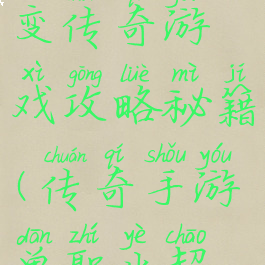 变传奇游
xì gōng lüè mì jí
戏攻略秘籍
chuán qí shǒu yóu
(传奇手游
dān zhí yè chāo
单职业超